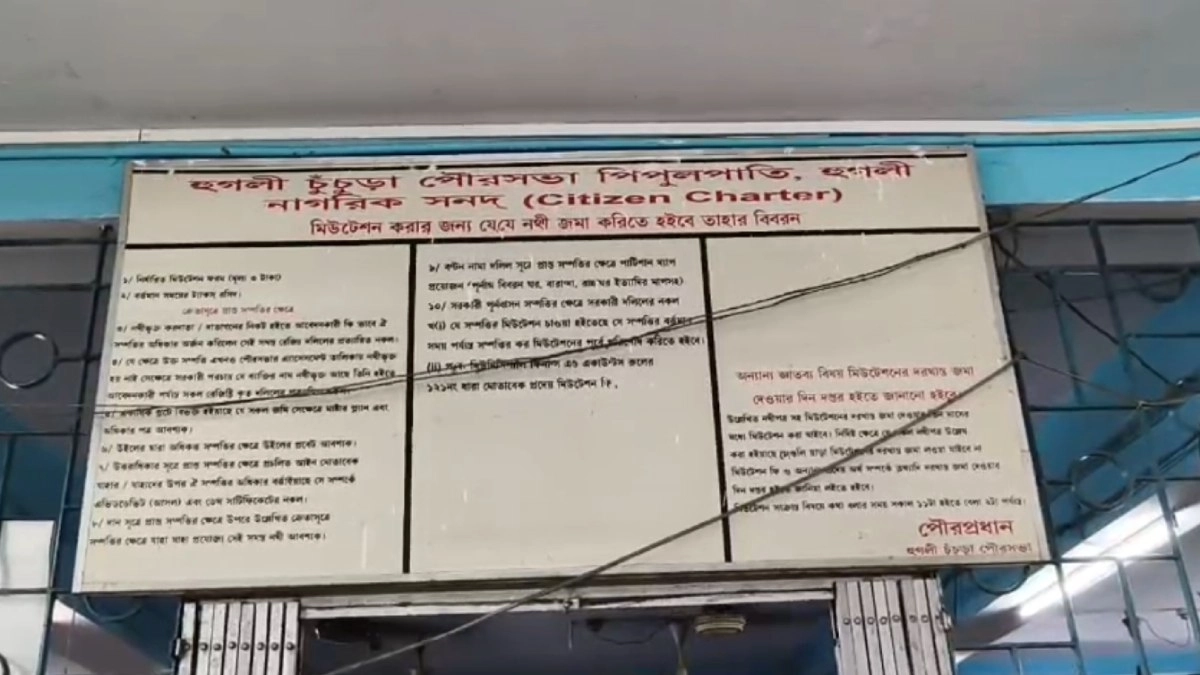 হুগলী চুঁচুড়া পৌরসভা পিপুলপাতি, হুগলী
নাগরিক সনদ (Citizen Charter)
মিউটেশন করার জন্য যেযে নথী জমা করিতে হইবে তাহার বিবরন
১/ নির্ধারিত মিউটেশন ফরম (মূল্য ৩ টাকা)
২/ বর্তমান সময়ের ট্যাকস্ রসিদ।
ক্রেতাসূত্রে প্রাপ্ত সম্পত্তির ক্ষেত্রে
৩/ নথীভুক্ত করদাতা / দাতাগনের নিকট হইতে আবেদনকারী কি ভাবে ঐ
সম্পত্তির অধিকার অর্জন করিলেন সেই সমস্ত রেজিঃ দলিলের প্রত্যায়িত নকল।
৪/ যে ক্ষেত্রে উক্ত সম্পত্তি এখনও পৌরসভার এ্যাসেসমেন্ট তালিকায় নথীভুক্ত
হয় নাই সেক্ষেত্রে সরকারী পরচায় যে ব্যাক্তির নাম নথীভুক্ত আছে তিনি হইতে
আবেদনকারী পর্যন্ত সকল রেজিষ্ট্রি কৃত দলিলের
৫/ একাধিক প্লটে বিভক্ত হইয়াছে যে সকল জমি সেক্ষেত্রে সাইট প্ল্যান এবং
অধিকার পত্র আবশ্যক।
৬/ উইলের দ্বারা অধিকৃত সম্পত্তির ক্ষেত্রে উইলের প্রবেট আবশ্যক।
৭/ উত্তরাধিকার সূত্রে প্রাপ্ত সম্পত্তির ক্ষেত্রে প্রচলিত আইন মোতাবেক
যাহার / যাহাদের উপর ঐ সম্পত্তির অধিকার বর্ত্তাইয়াছে সে সম্পর্কে
এভিডেভিট (আসল) এবং ডেথ সার্টিফিকেটের নকল।
৮/ দান সূত্রে প্রাপ্ত সম্পত্তির ক্ষেত্রে উপরে উল্লেখিত ক্রেতাসূত্রে
সম্পত্তির ক্ষেত্রে যাহা যাহা প্রযোজ্য সেই সমস্ত নথী আবশ্যক।
৯/ বন্টন নামা দলিল সূত্রে প্রাপ্ত সম্পত্তির ক্ষেত্রে পার্টিশান ম্যাপ
প্রয়োজন (পূর্নাঙ্গ বিবরন ঘর, বারান্দা, রান্না ঘর ইত্যাদির মাপসহ)
১০/ সরকারী পুর্নবাসন সম্পত্তির ক্ষেত্রে সরকারী দলিলের নকল
খ(i) যে সম্পত্তির মিউটেশন চাওয়া হইতেছে সে সম্পত্তির বর্ত্তমান
সময় পর্যন্ত সম্পত্তির কর মিউটেশনের পূর্বে পরিশোধ করিতে হইবে।
(ii) পঃবঃ মিউনিসিপ্যাল ফিনান্স এন্ড একাউন্টস রুলের
১২১নং ধারা মোতাবেক প্রদেয় মিউটেশন ফি,
অন্যান্য জ্ঞাতব্য বিষয় মিউটেশনের দরখাস্ত জমা
দেওয়ার দিন দপ্তর হইতে জানানো হইবে।
উল্লেখিত নথীপত্র সহ মিউটেশনের দরখাস্ত জমা দেওয়ার তিন মাসের
মধ্যে মিউটেশন করা যাইবে। নির্দিষ্ট ক্ষেত্রে যে সকল নথীপত্র উল্লেখ
করা হইয়াছে সেগুলি ছাড়া মিউটেশনের দরখাস্ত জমা লওয়া যাইবে না
মিউটেশন ফি ও অন্যান্য অর্থ সম্পর্কে তথ্যাদি দরখাস্ত জমা দেওয়ার
দিন দপ্তর হইতে জানিয়া লইতে হইবে।
মিউটেশন সংক্রান্ত বিষয়ে কথা বলার সময় সকাল ১১টা হইতে বেলা ২টা পর্যন্ত।
পৌরপ্রধান
হুগলী চুঁচুড়া পৌরসভা